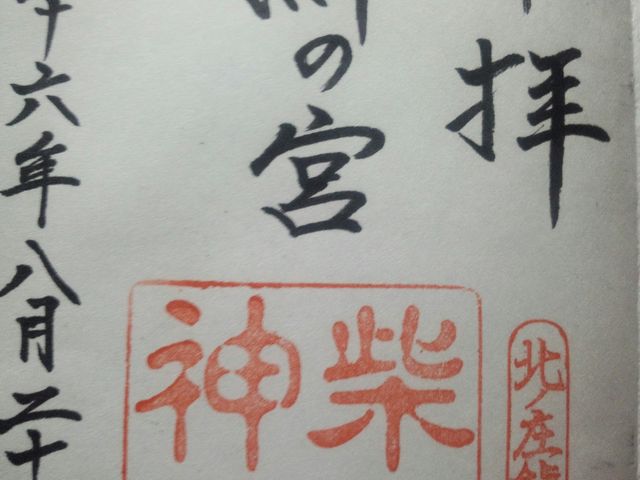 拝
の宮
十六年八月二十
柴
神
北ノ庄